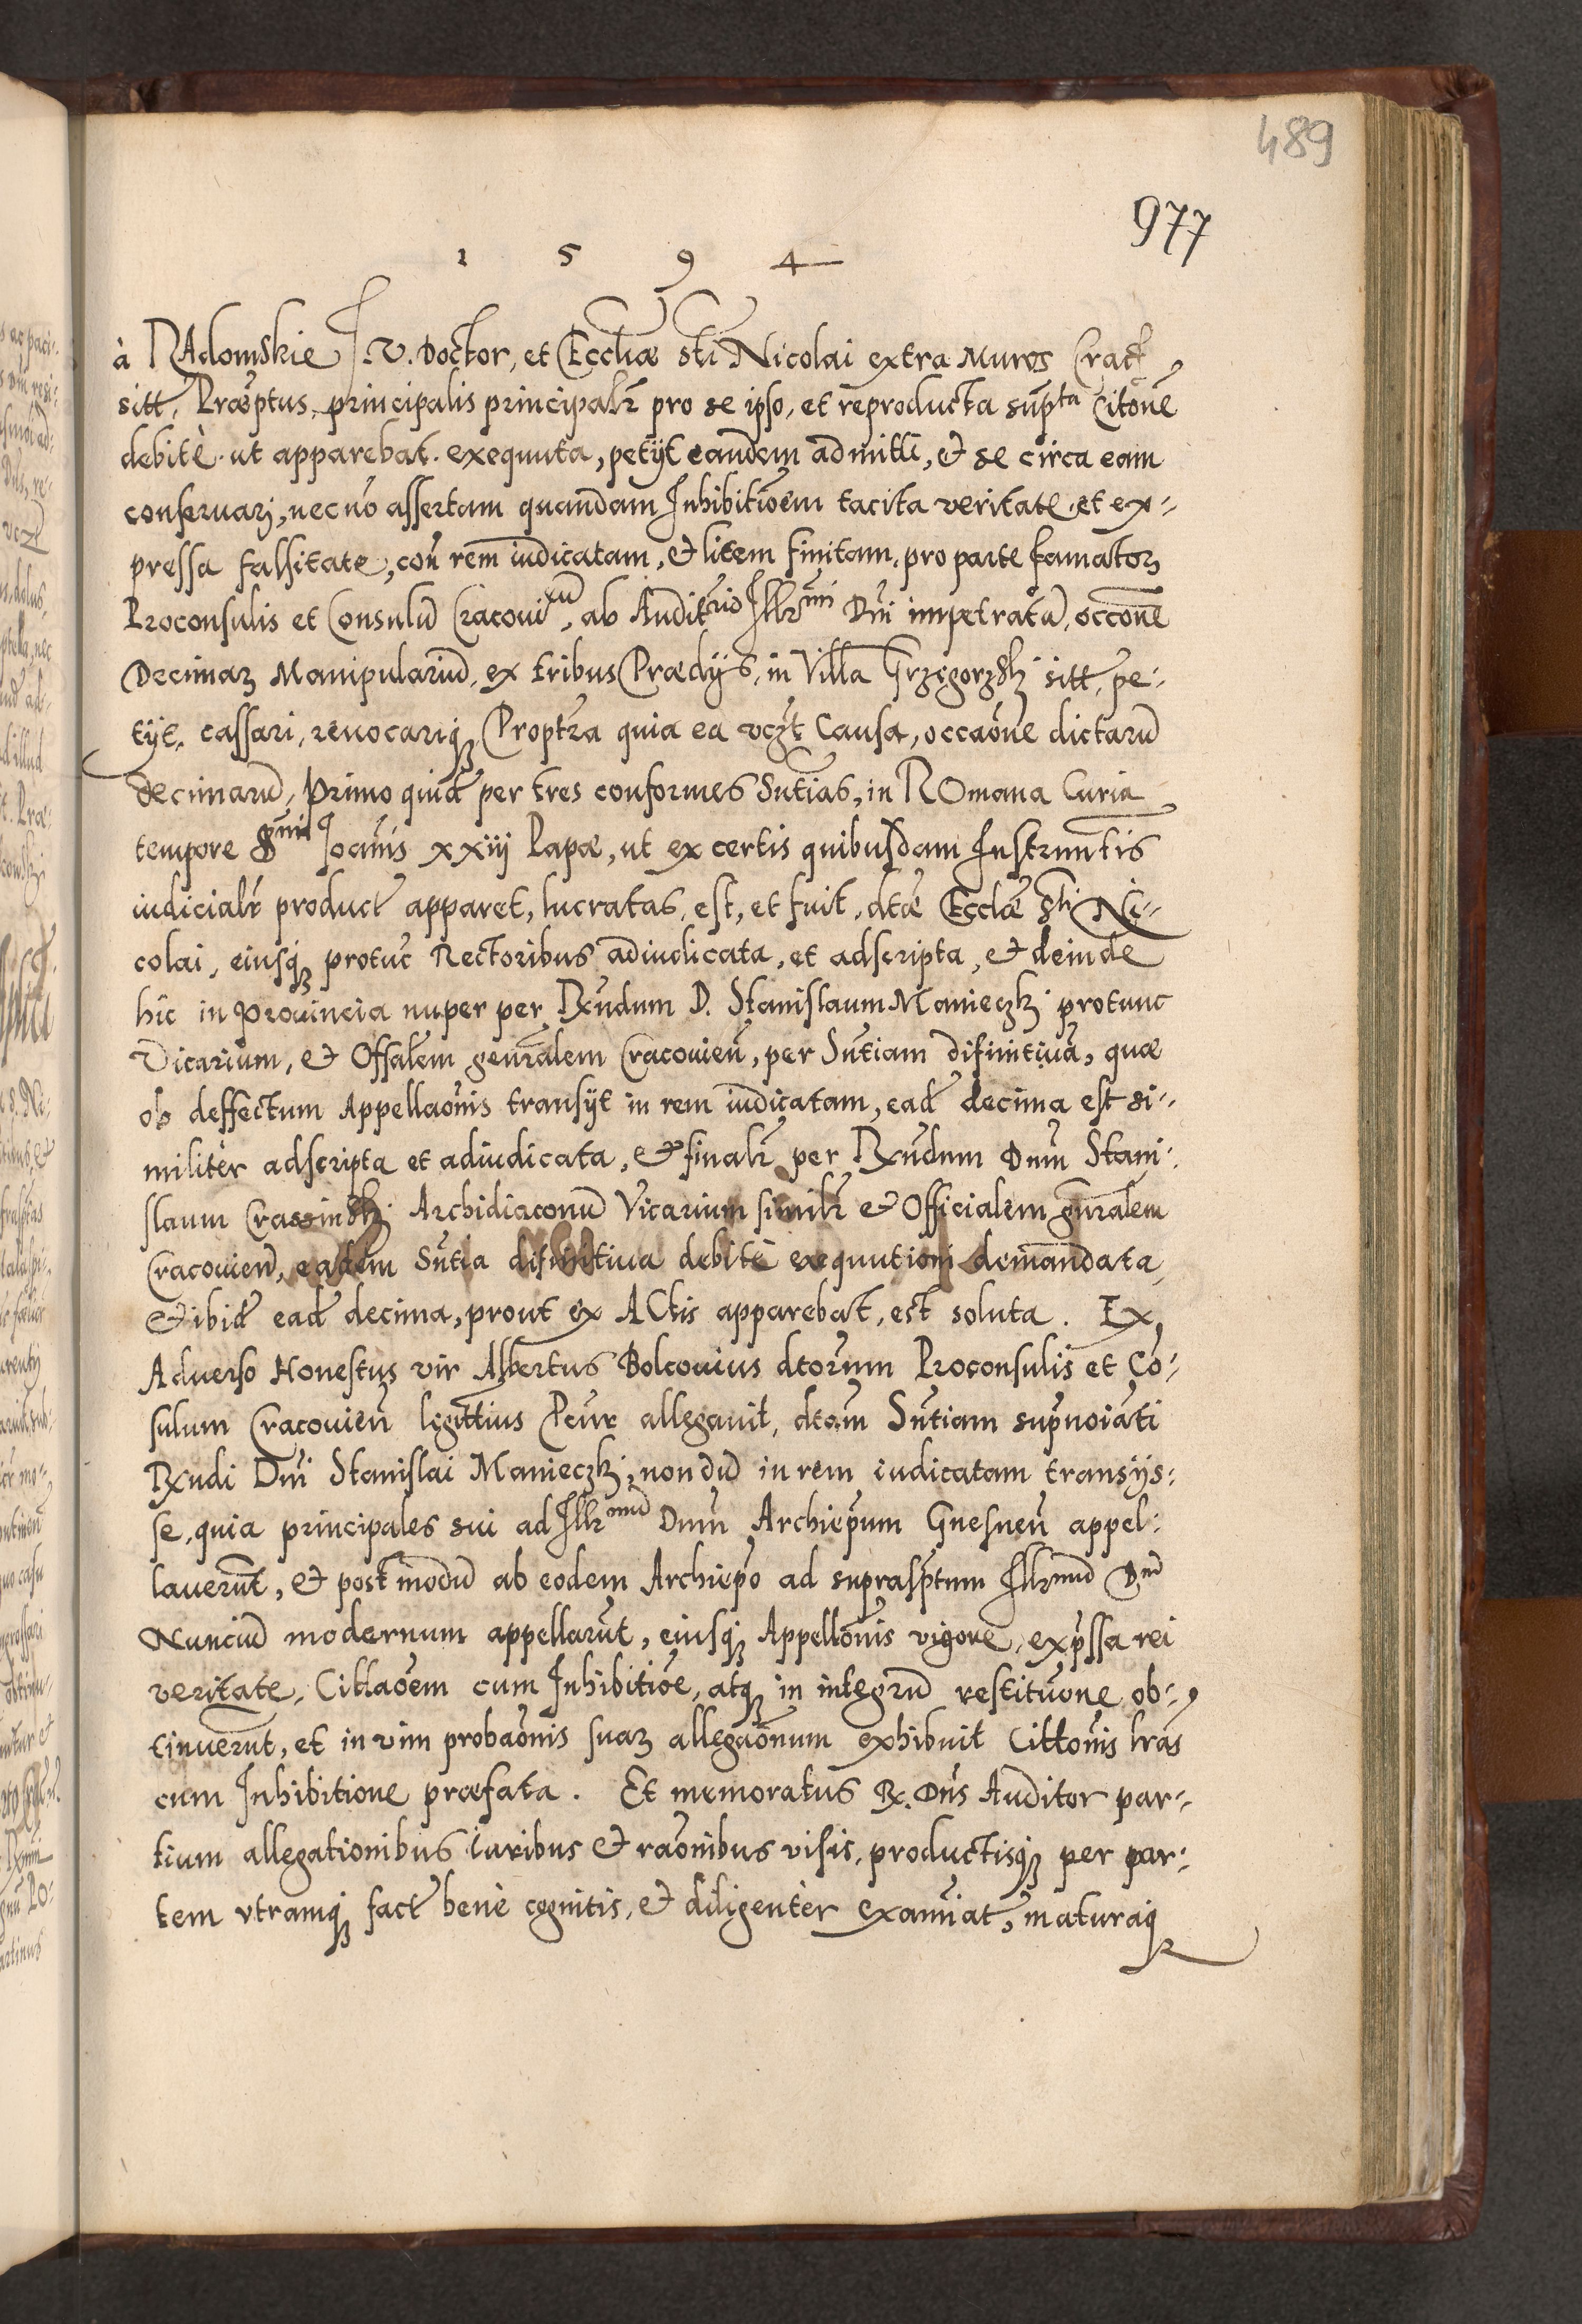 489
977
1 5 9 4
à RAdomskie J. V. Doctor, et Eccliæ sti Nicolai extra Muros Crac̃
sitt, Præptus, principalis principalr̃ pro se ipso, et reproducta supta Citone
debitè ut apparebat exequuta, petyt eandem admitti, et se circa eam
conseruarj, necnō assertam quandam Inhibitioēm tacita veritate et ex-
pressa falsitate, con̄ rem iudicatam, et litem finitam, pro parte famatoꝝ
Proconsulis et Consulū Cracoui, ab Auditrio Illr̄mi Dn̄i impetratā, occone
Decimaꝝ Manipulariū, ex tribus Prædijs, in Villa Grzegorzkj sitt, pe-
tyt, cassari, reuocariqꝫ Proptr̄a quia ea vcz̃t Causa, occaōne dictarū
decimarū, Primo quid̃ per tres conformes Sntīas, in ROmana Curia
tempore Joan̄is xxiij Papæ, ut ex certis quibusdam Instrumt̄is
iudicialr̃ product̃ apparet, lucratas, est, et fuit, dtæ̃ Ecclæ̃ Sti Ni-
colai, eiusqꝫ protūc Rectoribus adiudicata, et adscripta, et deinde
hic in Prouincia nuper per Rn̄dum D. Stanislaum Manieczkj protunc
Vicarium, et Offalem genr̄alem Cracouien̄, per Sntīam difinitiuā, quæ
ob deffectum Appellaōnis transijt in rem iudicatam, ead̃ decima est si-
militèr adscripta et adiudicata, et finalr̃ per Rn̄dum Dnm̄ Stani-
slaum Crassinskj Archidiaconū Vicarium similr̃ et Officialem gnr̄alem
Cracouien̄, eadem Sntīa difinitiua debitè exequutioni demandata,
et ibid̃ ead̃ decima, prout ex ACtis apparebat, est soluta. Ex
Aduerso Honestus vir Albertus Bolcouius dtorūm Proconsulis et Cō-
sulum Cracouien̄ legittius Pcur̄ allegauit, dtam̄ Sntīam supnoiāti
Rn̄di Dn̄i Stanislai Manieczkj, nondū in rem iudicatam transijs-
se, quia principales sui ad Illr̄mū Dnm̄ Archiep̄um Gnesnen̄ appel-
lauerūt, et postmodū ab eodem Archiep̄o ad suprasptum Illr̄mū Dn̄
Nunciū modernum appellarūt, eiusqꝫ Appellōnis vigore, exp̄ssa rei
veritate, Cittaōem cum Inhibitiōe, atqꝫ in integrū restituōne ob-
tinuerūt, et in vim probaōnis suaꝝ allegaōnum exhibuit Cittōnis lr̄as
cum Inhibitione præfata. Et memoratus R. Dn̄s Auditor par-
tium allegationibus iuribus et raōnibus visis, productisqꝫ per par-
tem vtramqꝫ fact̃ benè cognitis, et diligentèr examiat̃, maturaqꝫ